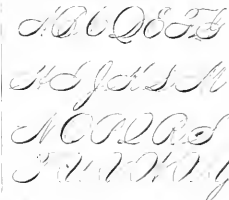 A B C D E F G
H I J K L M
N O P Q R S
T U V W X Y